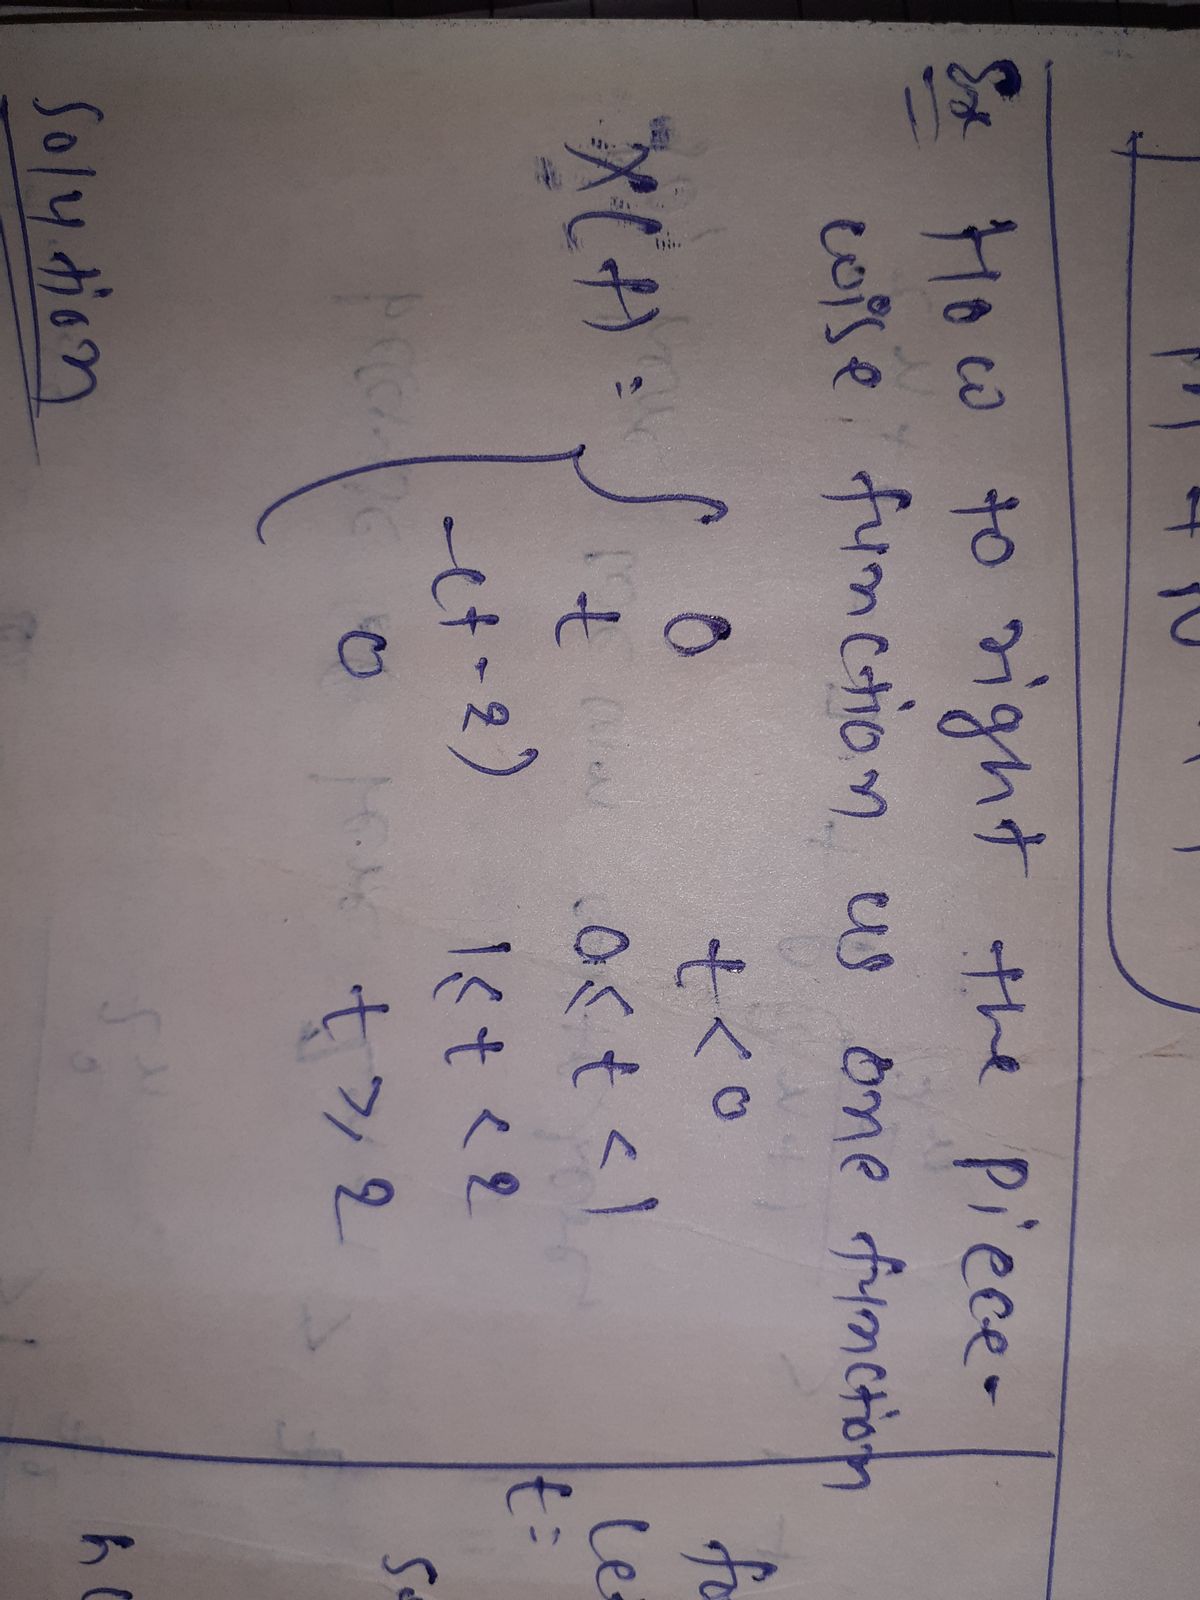 Ex How to right the piece-
wise function us one function
X(t) =
0 t < 0
t 0 ≤ t < 1
-(t - 2) 1 ≤ t < 2
0 t ≥ 2
Solution
t=